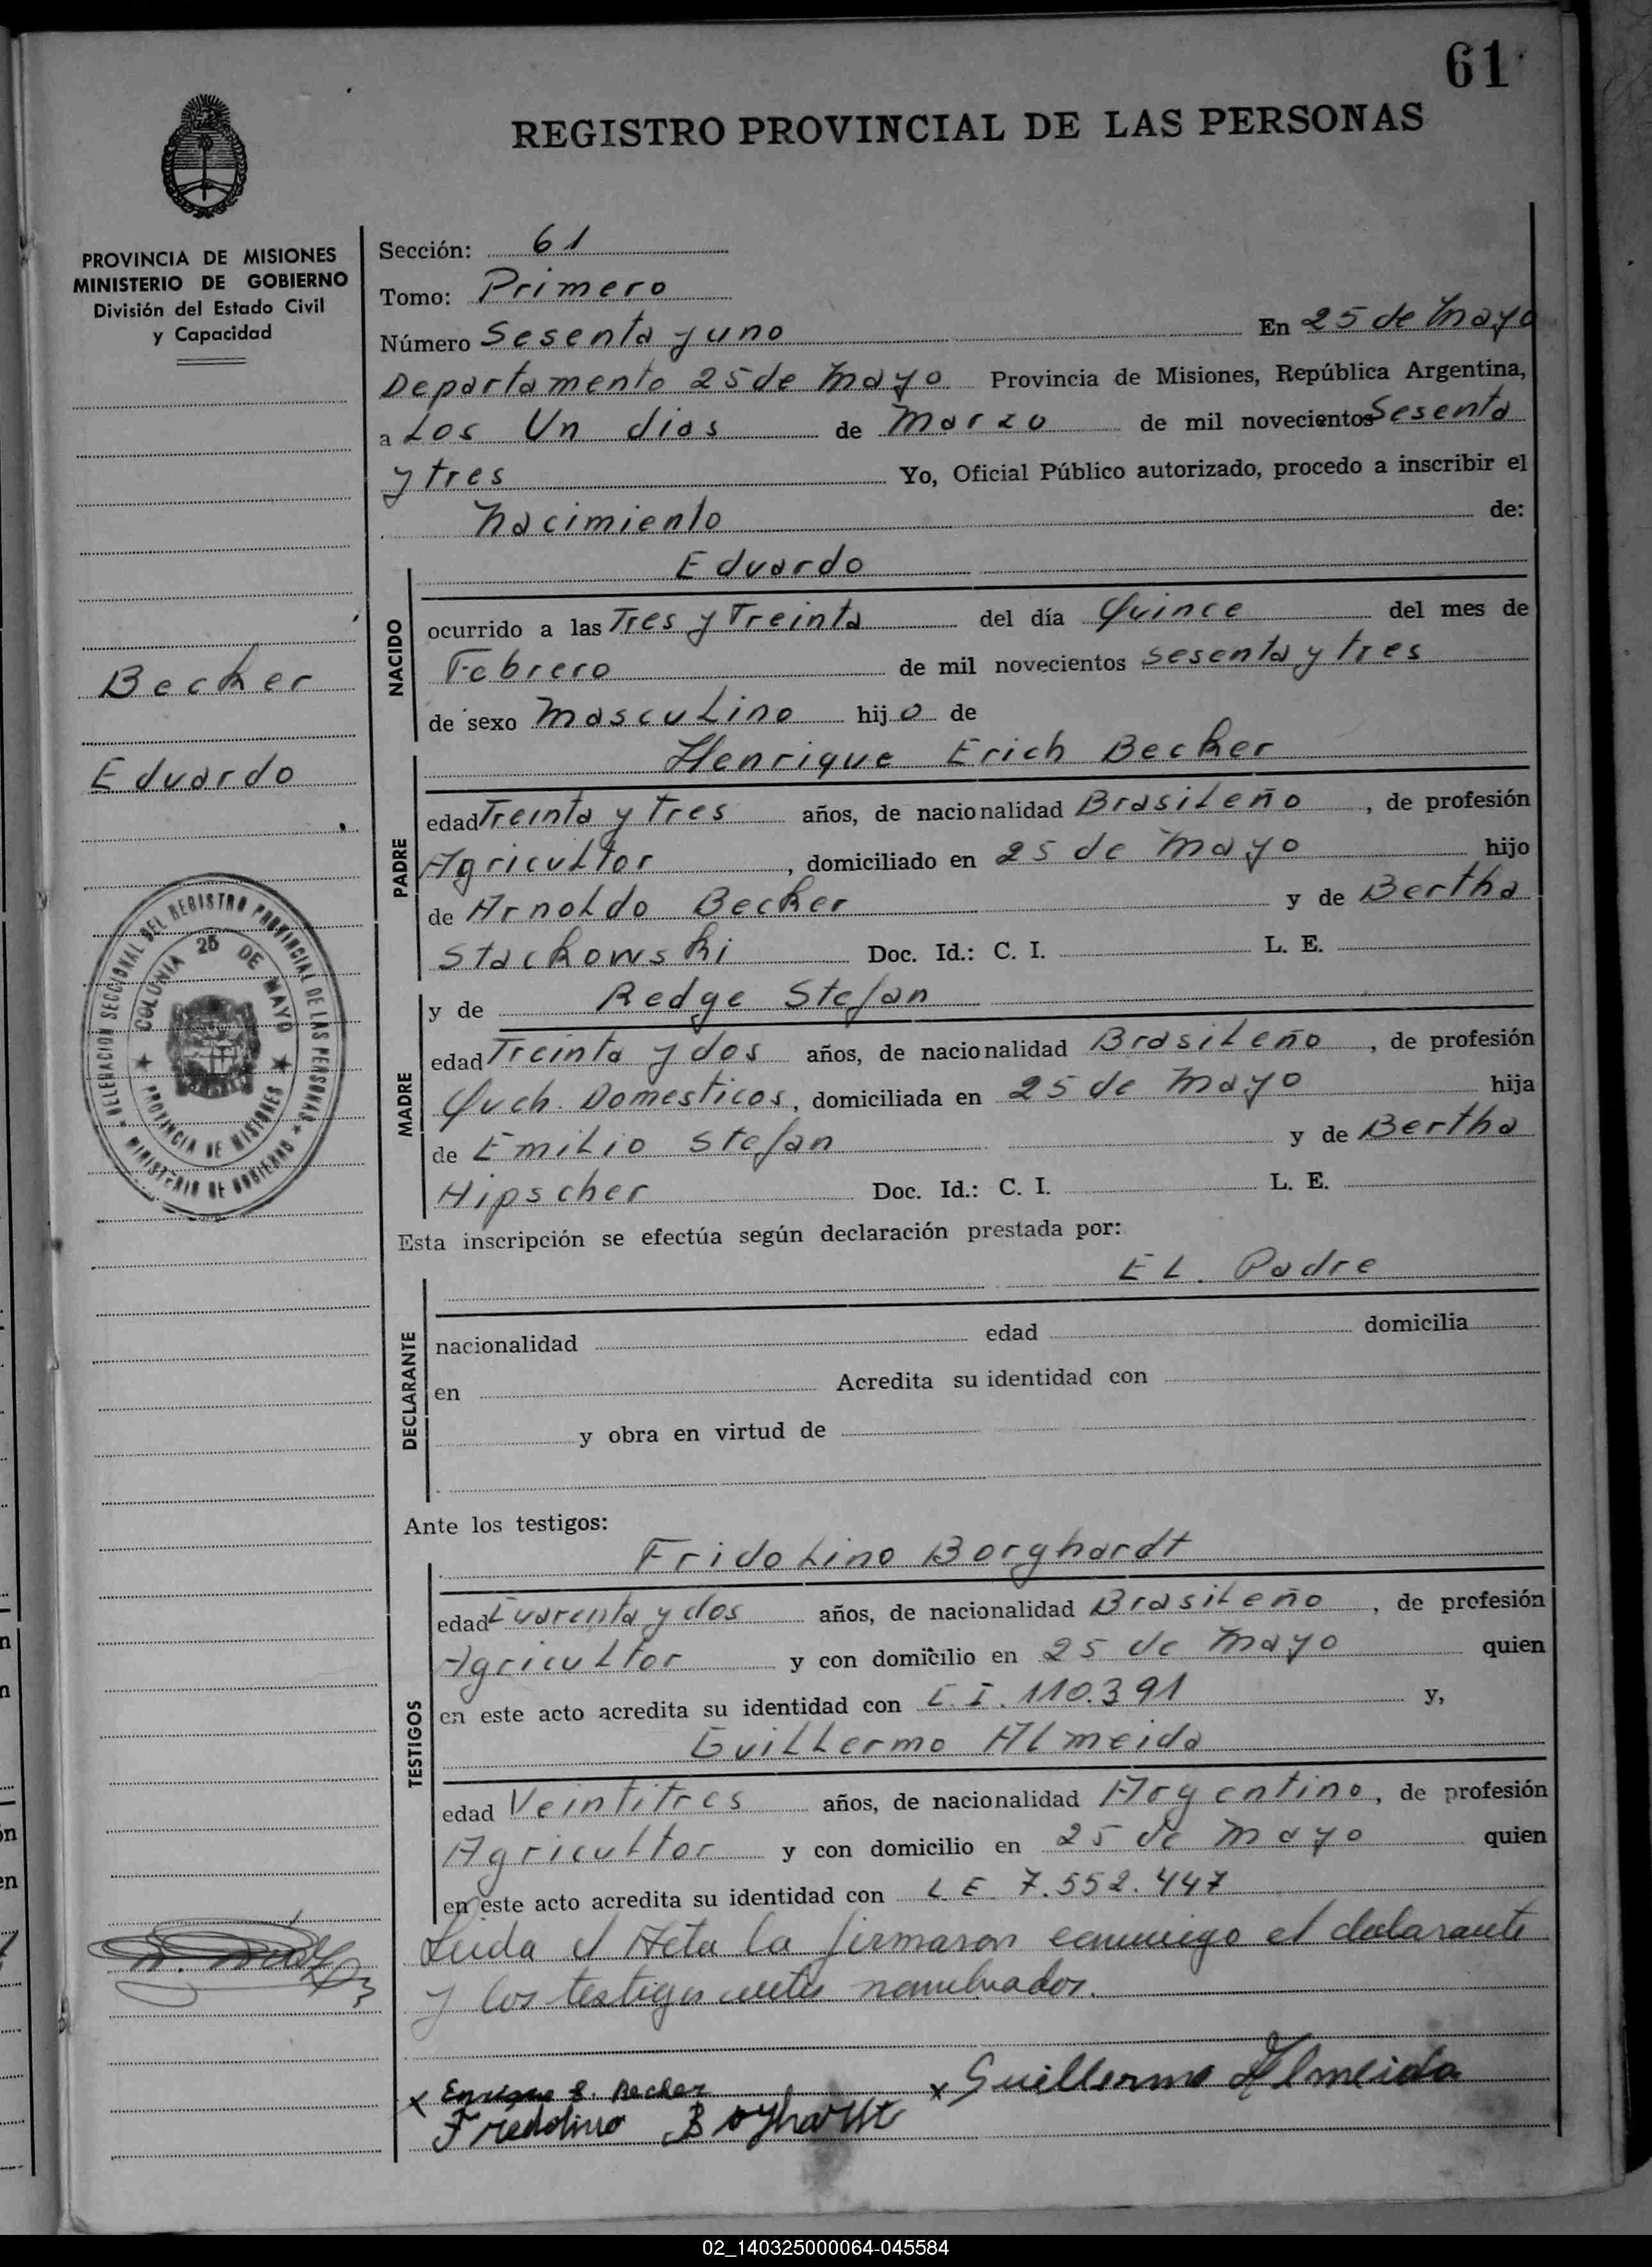 61
REGISTRO PROVINCIAL DE LAS PERSONAS
PROVINCIA DE MISIONES
MINISTERIO DE GOBIERNO
División del Estado Civil
y Capacidad
Sección: 61
Tomo: Primero
Número Sesenta y uno En 25 de Mayo
Departamento 25 de Mayo Provincia de Misiones, República Argentina,
a Los Un dias de Marzo de mil novecientos Sesenta
y tres Yo, Oficial Público autorizado, procedo a inscribir el
Nacimiento de:
Eduardo
NACIDO
ocurrido a las Tres y Treinta del día Quince del mes de
Febrero de mil novecientos sesenta y tres
de sexo Masculino hijo de
Becker
Eduardo
PADRE
Henrique Erich Becker
edad Treinta y tres años, de nacionalidad Brasileño, de profesión
Agricultor, domiciliado en 25 de Mayo hijo
de Arnoldo Becker y de Bertha
Stackowski Doc. Id.: C. I. L. E.
DELEGACION SECCIONAL DEL REGISTRO PROVINCIAL DE LAS PERSONAS
MINISTERIO DE GOBIERNO
COLONIA 25 DE MAYO
PROVINCIA DE MISIONES
MADRE
y de Redge Stefan
edad Treinta y dos años, de nacionalidad Brasileño, de profesión
Quch. Domesticos, domiciliada en 25 de Mayo hija
de Emilio Stefan y de Bertha
Hipscher Doc. Id.: C. I. L. E.
Esta inscripción se efectúa según declaración prestada por:
EL Padre
DECLARANTE
nacionalidad edad domicilia
en Acredita su identidad con
y obra en virtud de
Ante los testigos:
TESTIGOS
Fridolino Borghardt
edad Cuarenta y dos años, de nacionalidad Brasileño, de profesión
Agricultor y con domicilio en 25 de Mayo quien
en este acto acredita su identidad con C.I. 110.391 y,
Guillermo Almeida
edad Veintitres años, de nacionalidad Argentino, de profesión
Agricultor y con domicilio en 25 de Mayo quien
en este acto acredita su identidad con L E 7.552.447
Leida el Acta la firmaron conmigo el declarante
y los testigos antes nombrados.
x Enrique E. Becker x Guillermo Almeida
Fredolino Boghardt
02_140325000064-045584